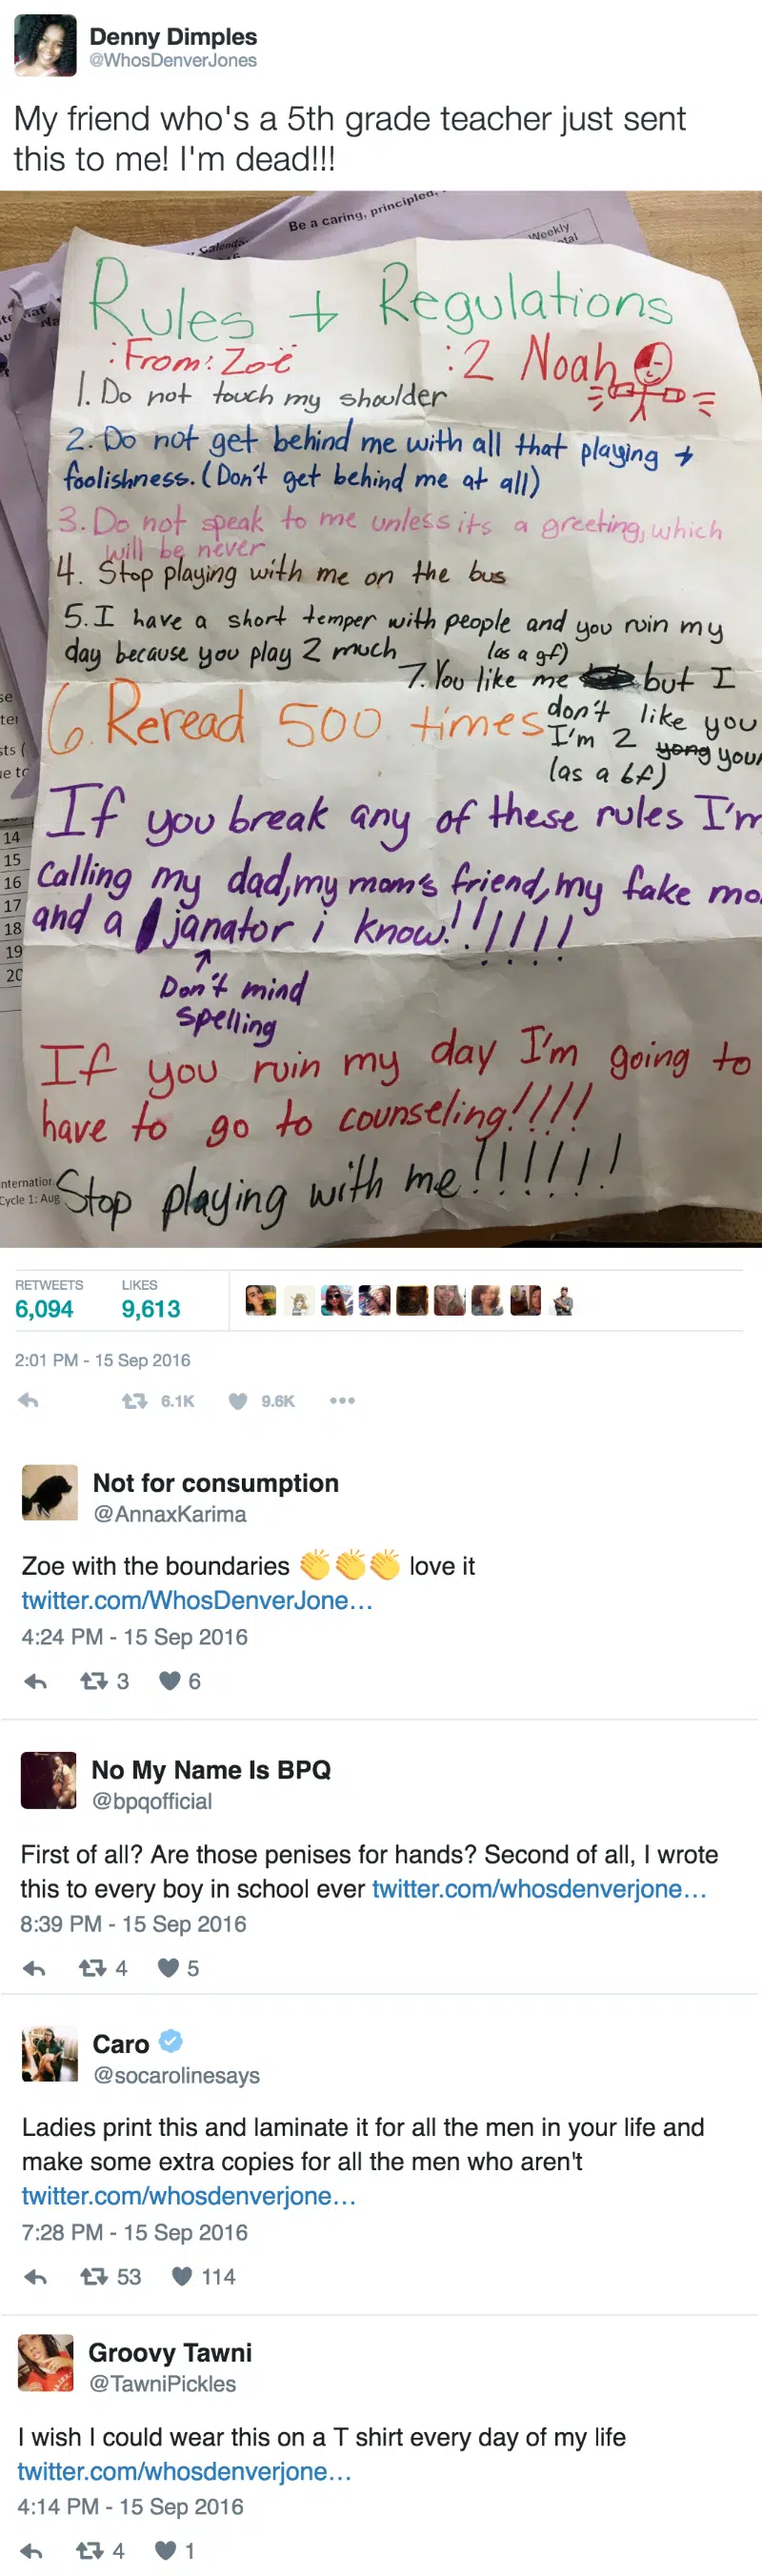 Denny Dimples
@WhosDenverJones
My friend who's a 5th grade teacher just sent
this to me! I'm dead!!!
Be a caring, principled,
Calenda
Weekly
Rules + Regulations
:From: Zoë :2 Noah
1. Do not touch my shoulder
2. Do not get behind me with all that playing +
foolishness. (Don't get behind me at all)
3. Do not speak to me unless its a greeting, which
will be never
4. Stop playing with me on the bus
5. I have a short temper with people and you ruin my
day because you play 2 much
(as a gf)
7. You like me but I
don't like you
I'm 2 yong your
(as a bf)
6. Reread 500 times
If you break any of these rules I'm
Calling my dad, my mom's friend, my fake mo
and a janator i know!!!!!!!
Don't mind
spelling
If you ruin my day I'm going to
have to go to counseling!!!!
Stop playing with me!!!!!!!
14
15
16
17
18
19
20
nternation
Cycle 1: Aug
RETWEETS LIKES
6,094 9,613
2:01 PM - 15 Sep 2016
6.1K 9.6K
Not for consumption
@AnnaxKarima
Zoe with the boundaries 👏👏👏 love it
twitter.com/WhosDenverJone…
4:24 PM - 15 Sep 2016
3 6
No My Name Is BPQ
@bpqofficial
First of all? Are those penises for hands? Second of all, I wrote
this to every boy in school ever twitter.com/whosdenverjone…
8:39 PM - 15 Sep 2016
4 5
Caro
@socarolinesays
Ladies print this and laminate it for all the men in your life and
make some extra copies for all the men who aren't
twitter.com/whosdenverjone…
7:28 PM - 15 Sep 2016
53 114
Groovy Tawni
@TawniPickles
I wish I could wear this on a T shirt every day of my life
twitter.com/whosdenverjone…
4:14 PM - 15 Sep 2016
4 1